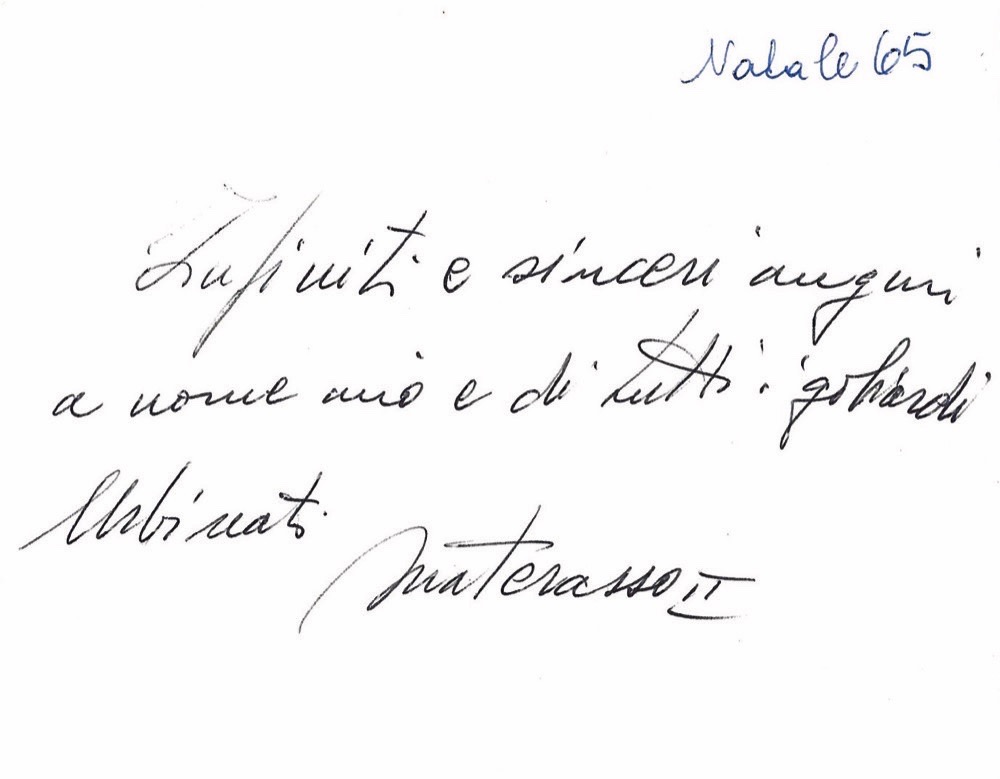 Natale 65
Infiniti e sinceri auguri
a nome mio e di tutti i goliardi
Urbinati.
Materasso II